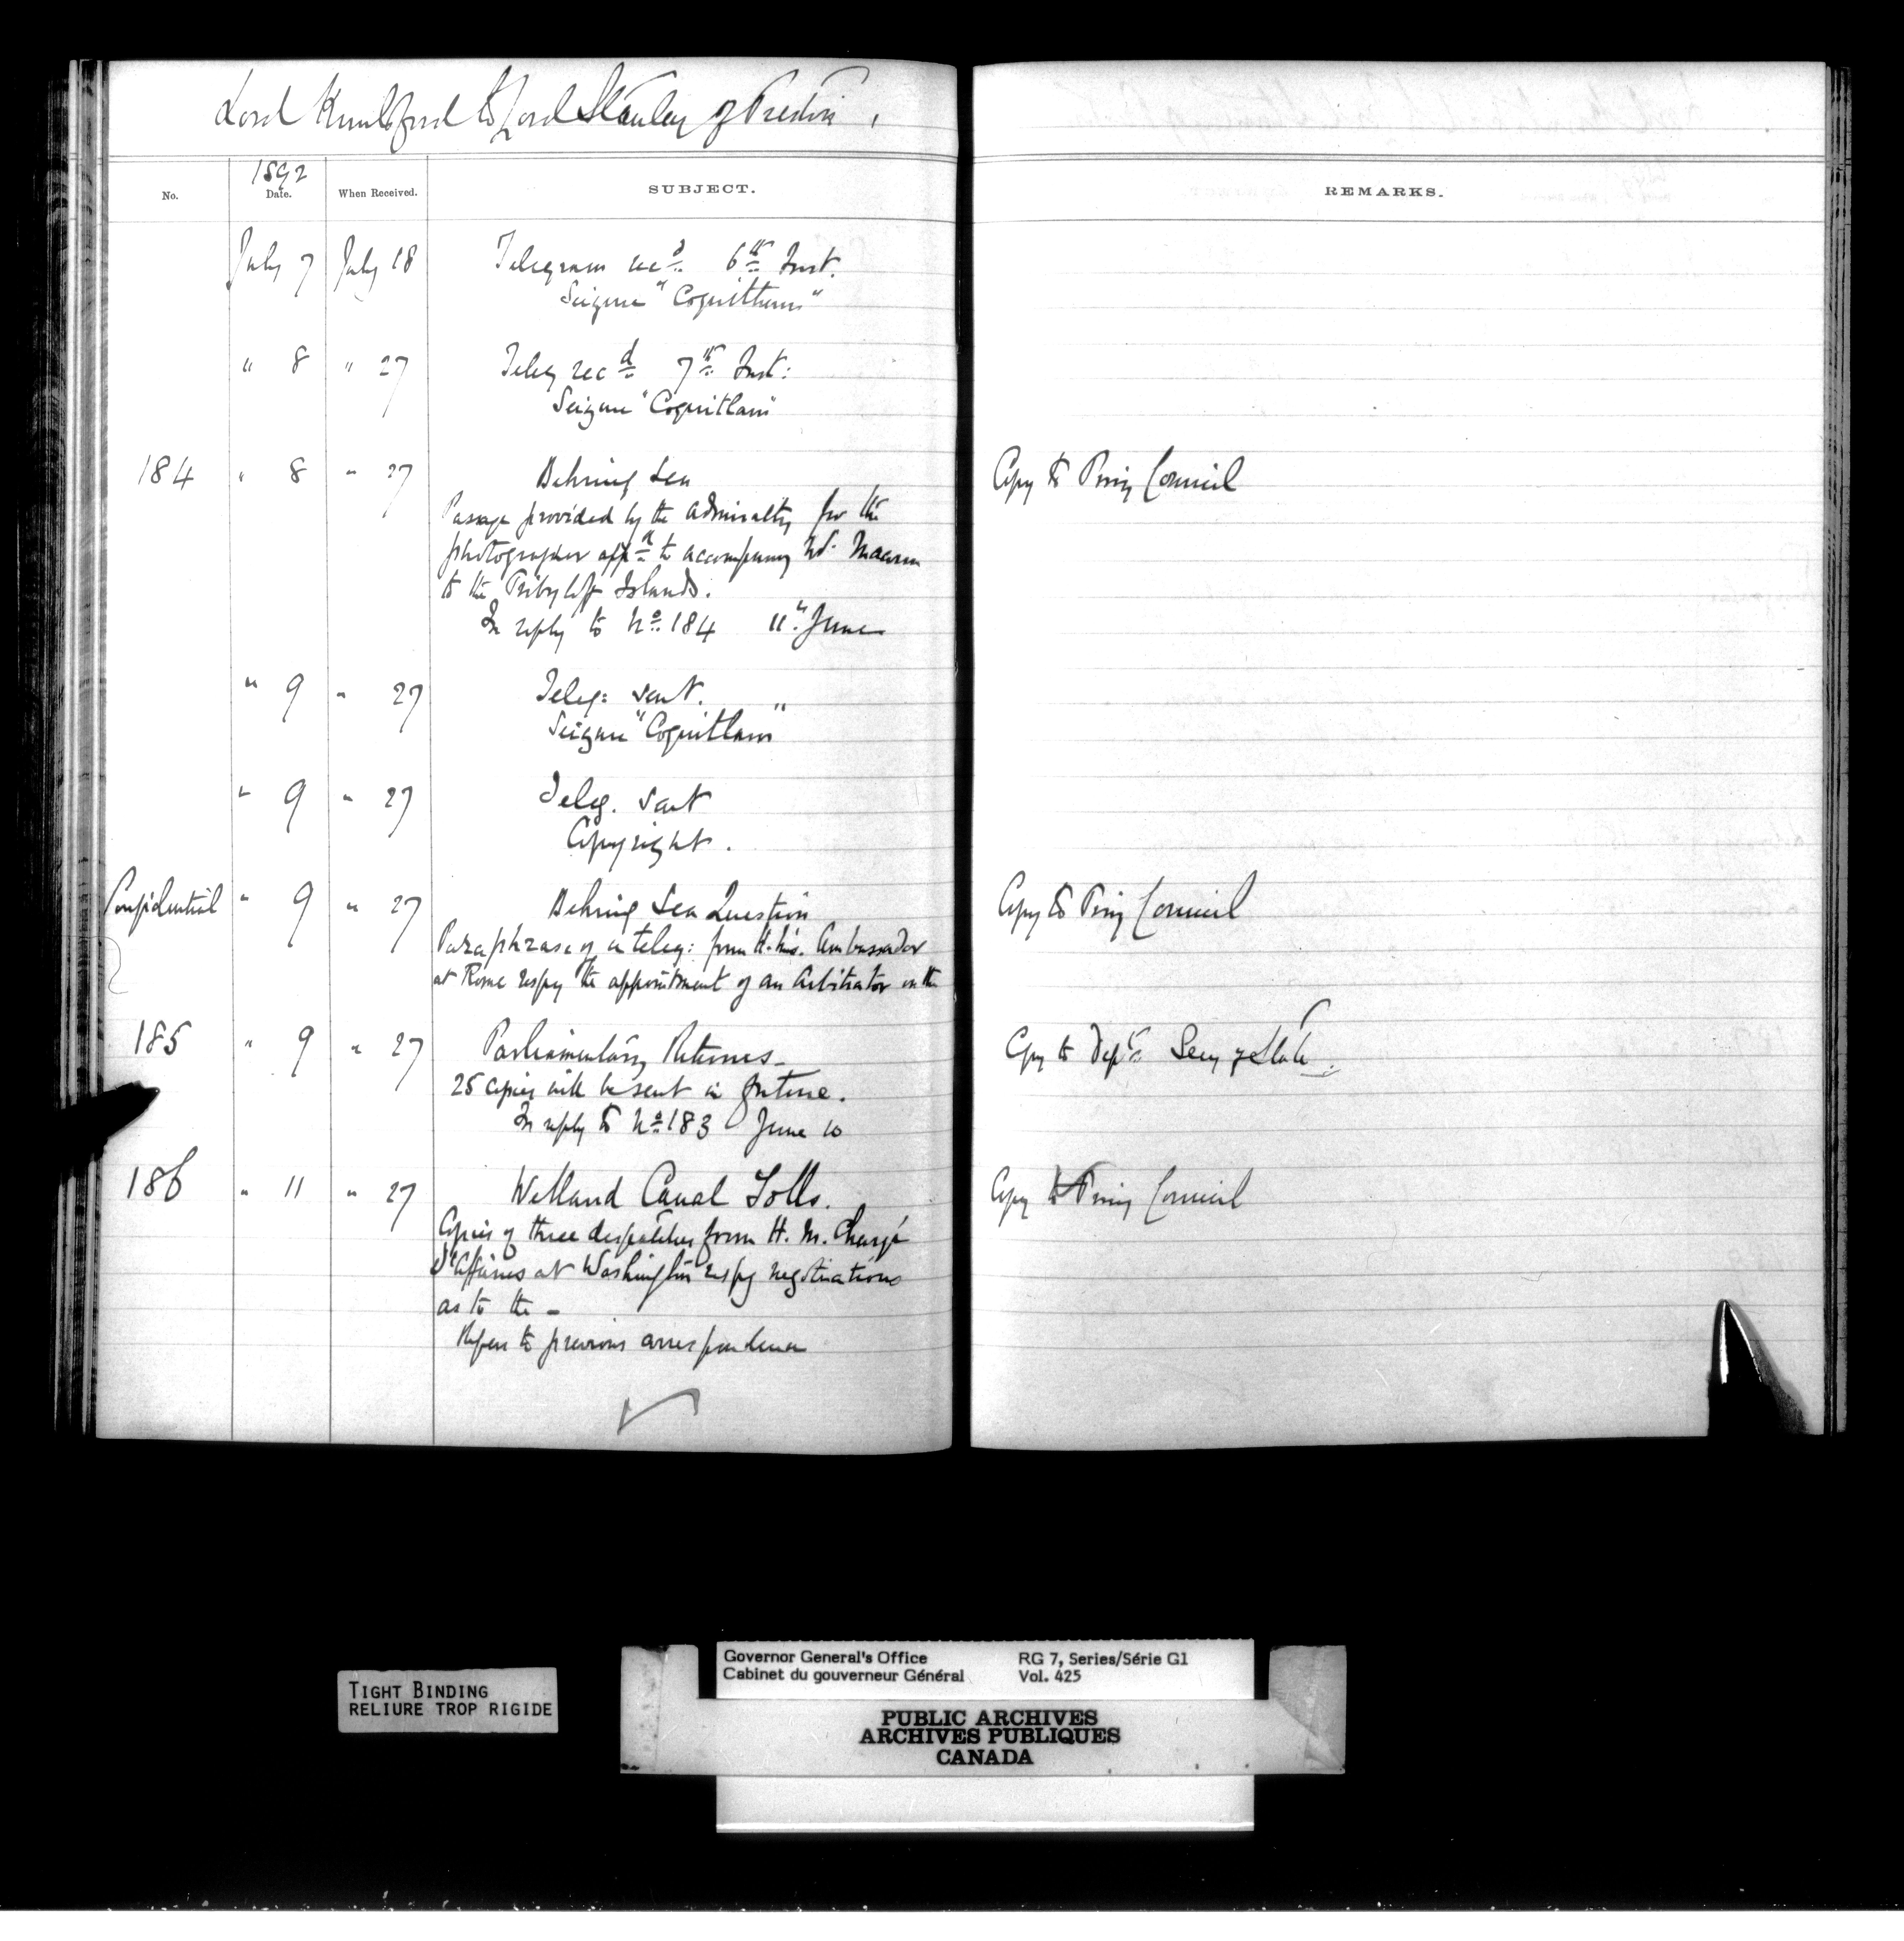 Lord Knutsford to Lord Stanley of Preston.
1892
No. Date. When Received. SUBJECT. REMARKS.
July 7 July 18 Telegram recd. 6th Inst.
Seizure "Coquitlam"
" 8 " 27 Teleg recd 7th Inst:
Seizure "Coquitlam"
184 " 8 " 27 Behring Sea Copy to Privy Council
Passage provided by the Admiralty for the
photographer appd to accompany Mr. Macoun
to the Pribyloff Islands.
In reply to No. 184 11th June
" 9 " 27 Teleg: sent.
Seizure "Coquitlam"
" 9 " 27 Teleg. sent
Copyright.
Confidential " 9 " 27 Behring Sea Question Copy to Privy Council
Paraphrase of a teleg: from H.M's. Ambassador
at Rome respg the appointment of an Arbitrator in the
185 " 9 " 27 Parliamentary Returns - Copy to Dept. Secy of State.
25 copies will be sent in future.
In reply to No. 183 June 10
186 " 11 " 27 Welland Canal Tolls. Copy to Privy Council
Copies of three despatches from H. M. Chargé
d'Affaires at Washington respg negotiations
as to the -
Refers to previous correspondence
TIGHT BINDING
RELIURE TROP RIGIDE
Governor General's Office RG 7, Series/Série G1
Cabinet du gouverneur Général Vol. 425
PUBLIC ARCHIVES
ARCHIVES PUBLIQUES
CANADA